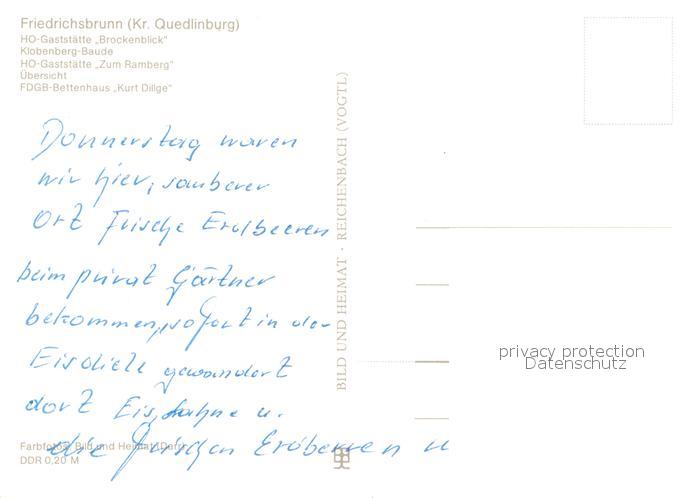 Friedrichsbrunn (Kr. Quedlinburg)
HO-Gaststätte „Brockenblick"
Klobenberg-Baude
HO-Gaststätte „Zum Ramberg"
Übersicht
FDGB-Bettenhaus „Kurt Dillge"
Donnerstag waren
wir hier, sauberer
Ort frische Erdbeeren
beim privat Gärtner
bekommen, sofort in der
Eisdiele gewandert
dort Eis, Sahne u.
die frischen Erdbeeren u
Farbfotos: Bild und Heimat
DDR 0,20 M
BILD UND HEIMAT · REICHENBACH (VOGTL)
privacy protection
Datenschutz